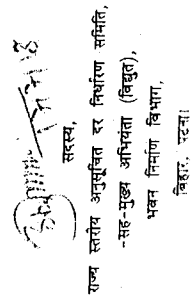 सदस्य,
राज्य स्तरीय अनुसूचित दर निर्धारण समिति,
-सह-मुख्य अभियंता (विद्युत),
भवन निर्माण विभाग,
बिहार, पटना।